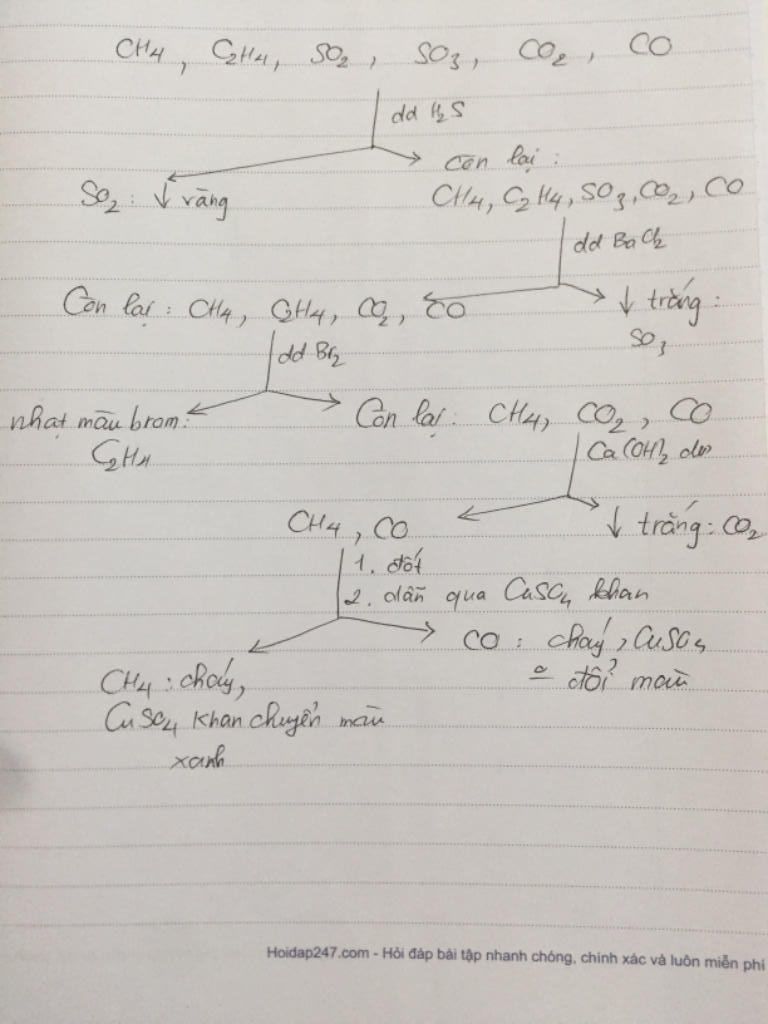 CH4, C2H4, SO2, SO3, CO2, CO
dd H2S
SO2: ↓ vàng
Còn lại:
CH4, C2H4, SO3, CO2, CO
dd BaCl2
Còn lại: CH4, C2H4, CO2, CO
↓ trắng:
SO3
dd Br2
nhạt màu brom:
C2H4
Còn lại: CH4, CO2, CO
Ca(OH)2 dư
CH4, CO
↓ trắng: CO2
1. đốt
2. dẫn qua CuSO4 khan
CO: cháy, CuSO4
đổi màu
CH4: cháy,
CuSO4 khan chuyển màu
xanh
Hoidap247.com - Hỏi đáp bài tập nhanh chóng, chính xác và luôn miễn phí